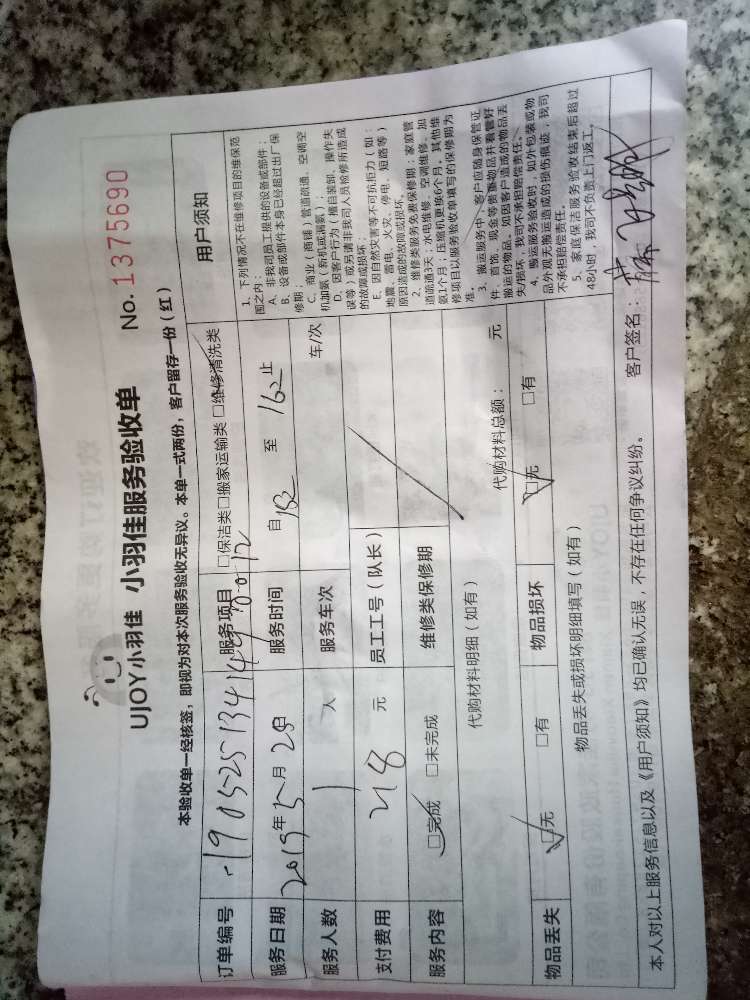 UJOY小羽佳 小羽佳服务验收单 No. 1375690
本验收单一经核签，即视为对本次服务验收无异议。本单一式两份，客户留存一份（红）
订单编号 服务项目 □保洁类□搬家运输类 □维修清洗类
服务日期 2019年5月28日 服务时间 自 至 止
服务人数 1 人 服务车次 车/次
支付费用 元 员工工号（队长）
服务内容 □完成 □未完成 维修类保修期
代购材料明细（如有） 代购材料总额： 元
物品丢失 □无 □有 物品损坏 □无 □有
物品丢失或损坏明细填写（如有）
用户须知
1、下列情况不在维修项目的维保范
围之内：
A、非我司员工提供的设备或部件；
B、设备或部件本身已经超过出厂保
修期；
C、商业（商铺）管道疏通、空调空
机加氨（新机或漏氨）；
D、因客户行为（擅自装卸、操作失
误等）或另请非我司人员检修所造成
的故障或损坏；
E、因自然灾害等不可抗拒力（如：
地震、雷电、火灾、停电、短路等）
原因造成的故障或损坏。
2、维修类服务免费保修期：家庭管
道疏通3天；水电维修、空调维修、加
氨1个月；压缩机更换6个月。其他维
修项目以服务验收单填写的保修期为
准。
3、搬运服务中，客户应随身保管证
件、首饰、现金等贵重物品并看管好
搬运的物品，如因客户造成的物品丢
失/损坏，我司不承担赔偿责任。
4、搬运服务验收时，如外包装或物
品外观无搬运造成的损伤痕迹，我司
不承担赔偿责任。
5、家庭保洁服务验收结束后超过
48小时，我司不负责上门返工。
本人对以上服务信息以及《用户须知》均已确认无误，不存在任何争议纠纷。 客户签名：